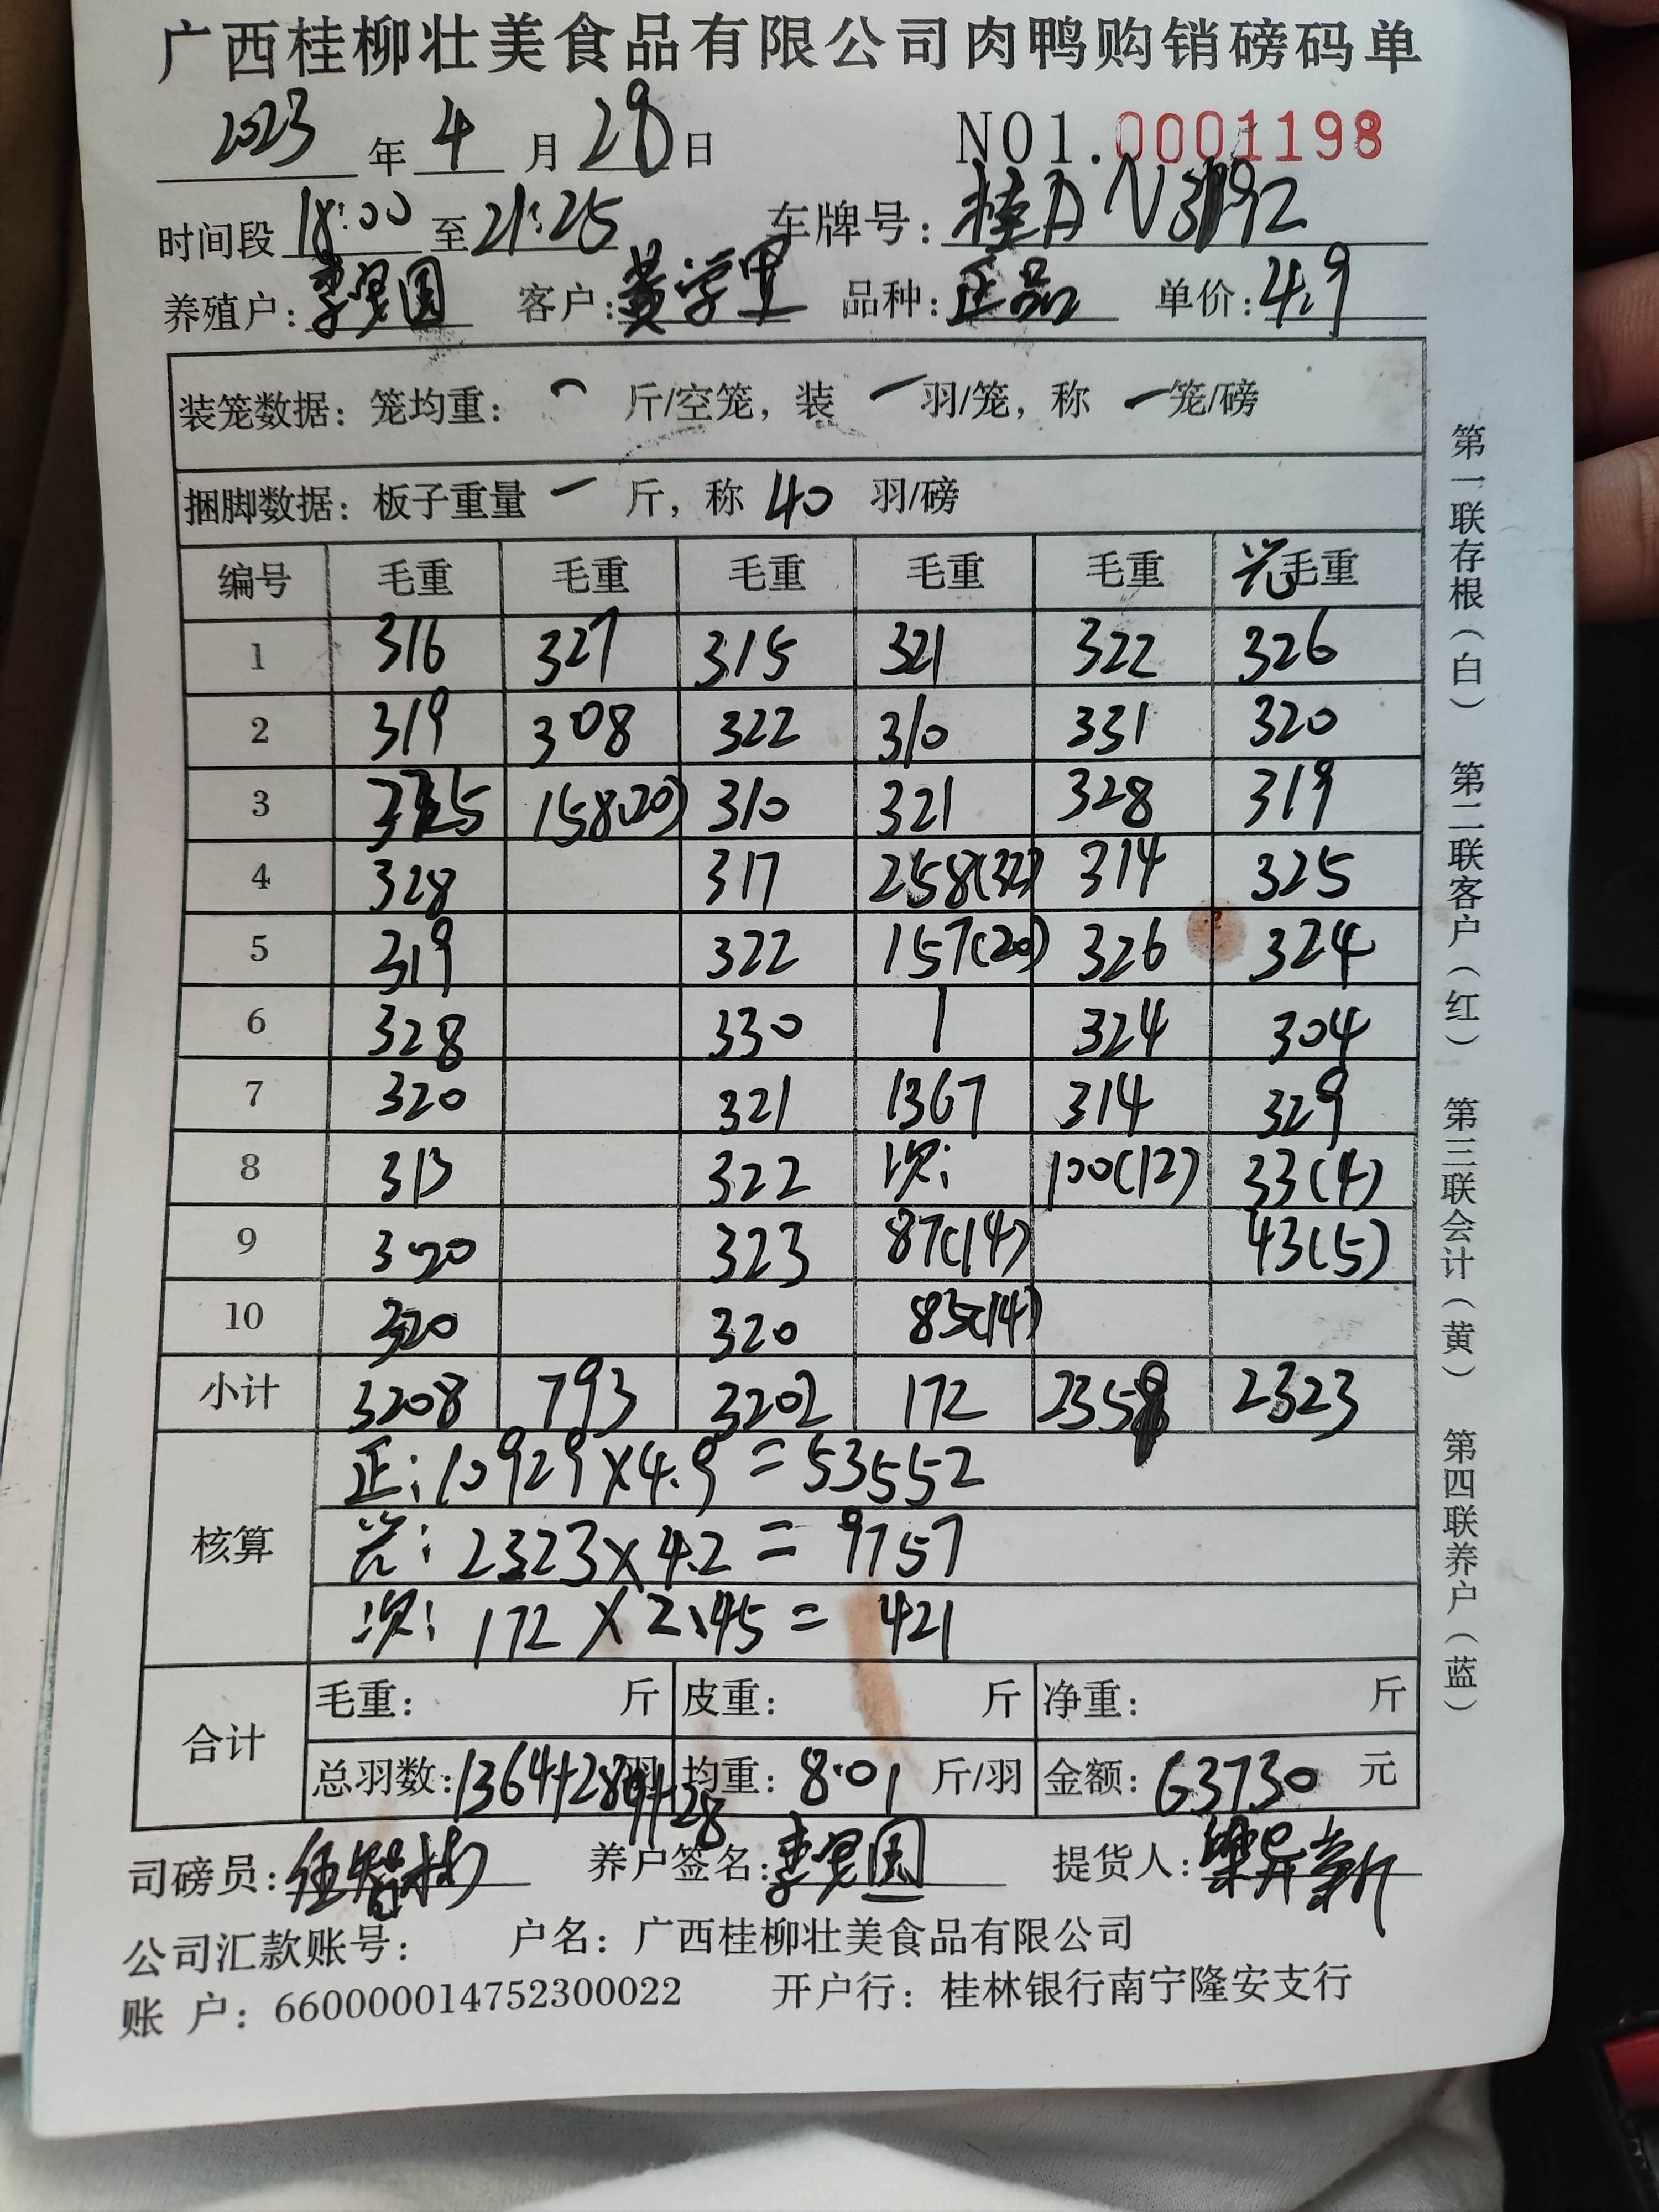 广西桂柳壮美食品有限公司肉鸭购销磅码单
2023 年 4 月 28 日 NO1.0001198
时间段 18:00 至 21:25 车牌号: 桂A N3192
养殖户: 李 国 客户: 黄学里 品种: 正品 单价: 4.9
装笼数据: 笼均重: 一 斤/空笼, 装 一 羽/笼, 称 一 笼/磅
捆脚数据: 板子重量 一 斤, 称 40 羽/磅
编号 毛重 毛重 毛重 毛重 毛重 光毛重
1 316 327 315 321 322 326
2 319 308 322 310 331 320
3 325 158(20) 310 321 328 319
4 328 317 258(32) 314 325
5 319 322 157(20) 326 324
6 328 330 | 324 304
7 320 321 1367 314 329
8 313 322 次: 100(12) 33(4)
9 320 323 87(14) 43(5)
10 320 320 85(14)
小计 3208 793 3202 172 2359 2323
核算
正: 10929×4.9=53552
光: 2323×4.2=9757
次: 172×2.45=421
合计
毛重: 斤 皮重: 斤 净重: 斤
总羽数: 1364+289+28 羽 均重: 8.01 斤/羽 金额: 63730 元
司磅员: 养户签名: 李 国 提货人: 新
公司汇款账号: 户名: 广西桂柳壮美食品有限公司
账 户: 660000014752300022 开户行: 桂林银行南宁隆安支行
第一联存根(白) 第二联客户(红) 第三联会计(黄) 第四联养户(蓝)